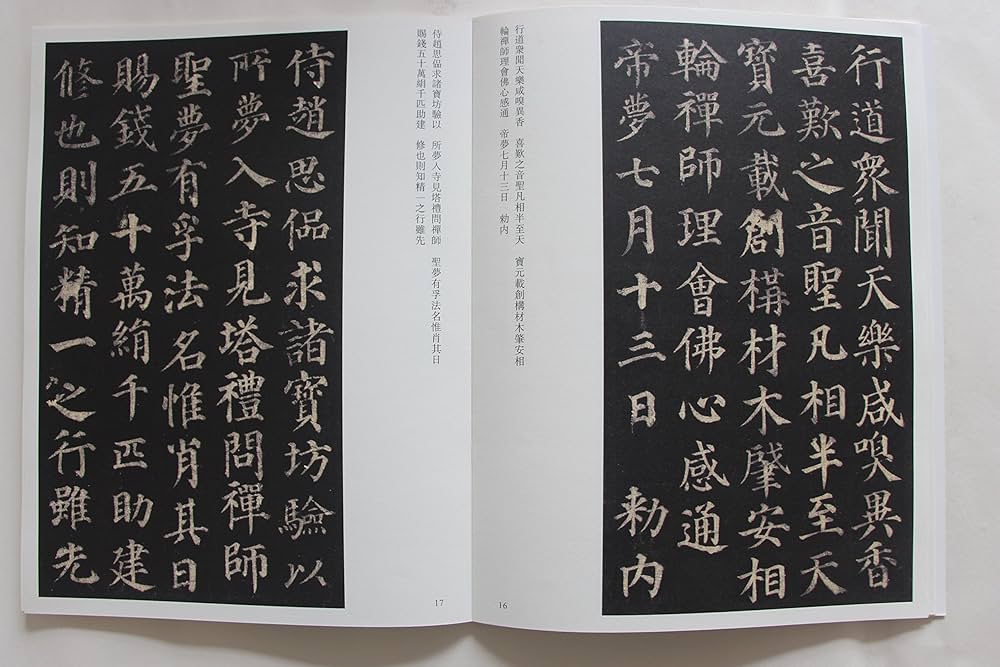 行道衆聞天樂咸嗅異香
喜歎之音聖凡相半至天
寶元載創構材木肇安相
輪禪師理會佛心感通
帝夢七月十三日 勅内
行道衆聞天樂咸嗅異香 喜歎之音聖凡相半至天 寶元載創構材木肇安相
輪禪師理會佛心感通 帝夢七月十三日 勅内
16
侍趙思偘求諸寶坊驗以 所夢入寺見塔禮問禪師 聖夢有孚法名惟肖其日
賜錢五十萬絹千匹助建 修也則知精一之行雖先
17
侍趙思偘求諸寶坊驗以
所夢入寺見塔禮問禪師
聖夢有孚法名惟肖其日
賜錢五十萬絹千匹助建
修也則知精一之行雖先